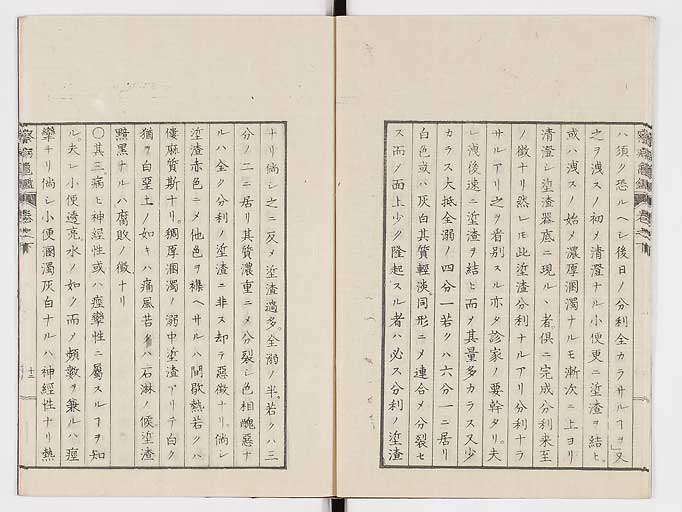 ハ須ク恐ルヘシ後日ノ分利全カラサルヿヲ」又
之ヲ洩スノ初メ清澄ナル小便更ニ塗渣ヲ結ヒ
或ハ洩スノ始メ濃厚溷濁ナルモ漸次ニ上ヨリ
清澄シ塗渣器底ニ現ルヽ者俱ニ完成分利来至
ノ徴ナリ然レモ此塗渣分利ナルアリ分利ナラ
サルアリ之ヲ看別スル亦タ診家ノ要幹タリ夫
レ洩後速ニ塗渣ヲ結ヒ而ヲ其量多カラス又少
カラス大抵全溺ノ四分一若クハ六分一ニ居リ
白色或ハ灰白其質輕淡同形ニメ連合メ分裂セ
ス而ノ面上少ク隆起スル者ハ必ス分利ノ塗渣
ナリ倘シ之ニ反メ塗渣過多全溺ノ半若クハ三
分ノ二ニ居リ其質濃重ニメ分裂シ色相醜惡ナ
ルハ全ク分利ノ塗渣ニ非ス却テ惡徴ナリ倘シ
塗渣赤色ニメ他色ヲ襍ヘサルハ間歇熱若クハ
僂麻質斯ナリ稠厚溷濁ノ溺中塗渣アリテ白ク
猶ヲ白堊土ノ如キハ痛風苦ハ石淋ノ候塗渣
黯黑ナルハ腐敗ノ徴ナリ
〇其三病ヒ神經性或ハ痙攣性ニ屬スルヿヲ知
ル夫レ小便透亮水ノ如ク而ノ頻數ヲ兼ルハ痙
攣ナリ倘シ小便溷濁灰白ナルハ神經性ナリ熱
卷之下
十二